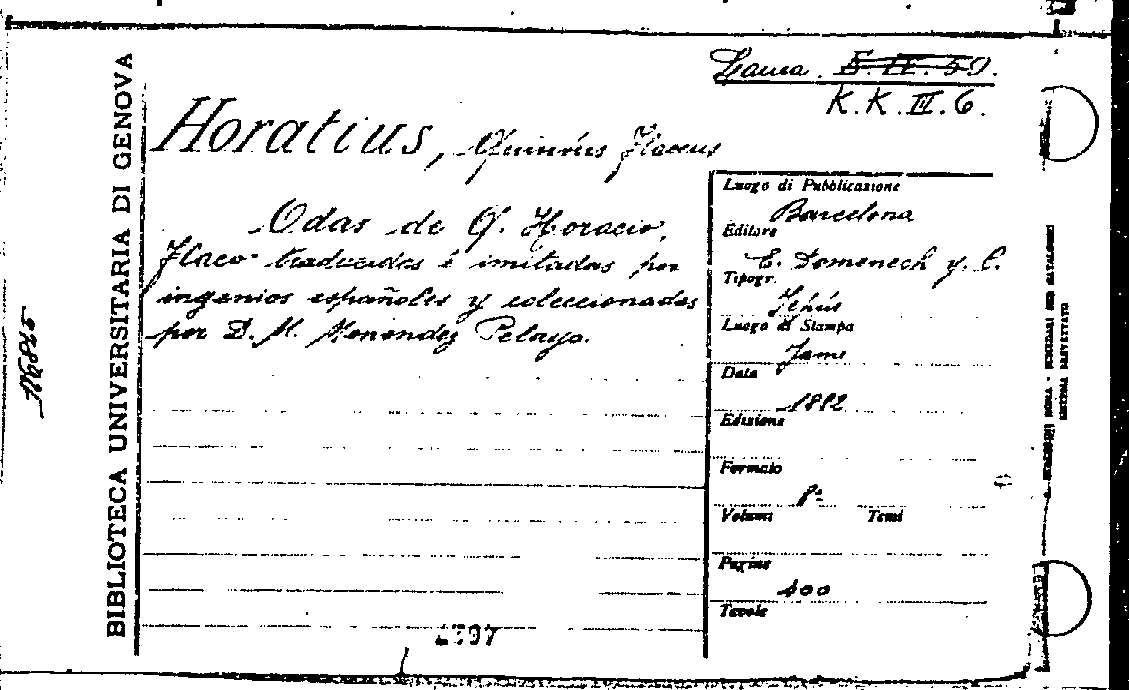 K.K.III.6.
Horatius, Quintus Flaccus
Odas de Q. Horacio,
Flaco traducidas é imitadas por
ingenios españoles y coleccionadas
por D. M. Menendez Pelayo.
BIBLIOTECA UNIVERSITARIA DI GENOVA
Luogo di Pubblicazione
Barcelona
Editore
E. Domenech y C.
Tipogr.
Jehús
Luogo di Stampa
Data
1882
Edizione
Formato
8º
Volumi Tomi
Pagine
400
Tavole